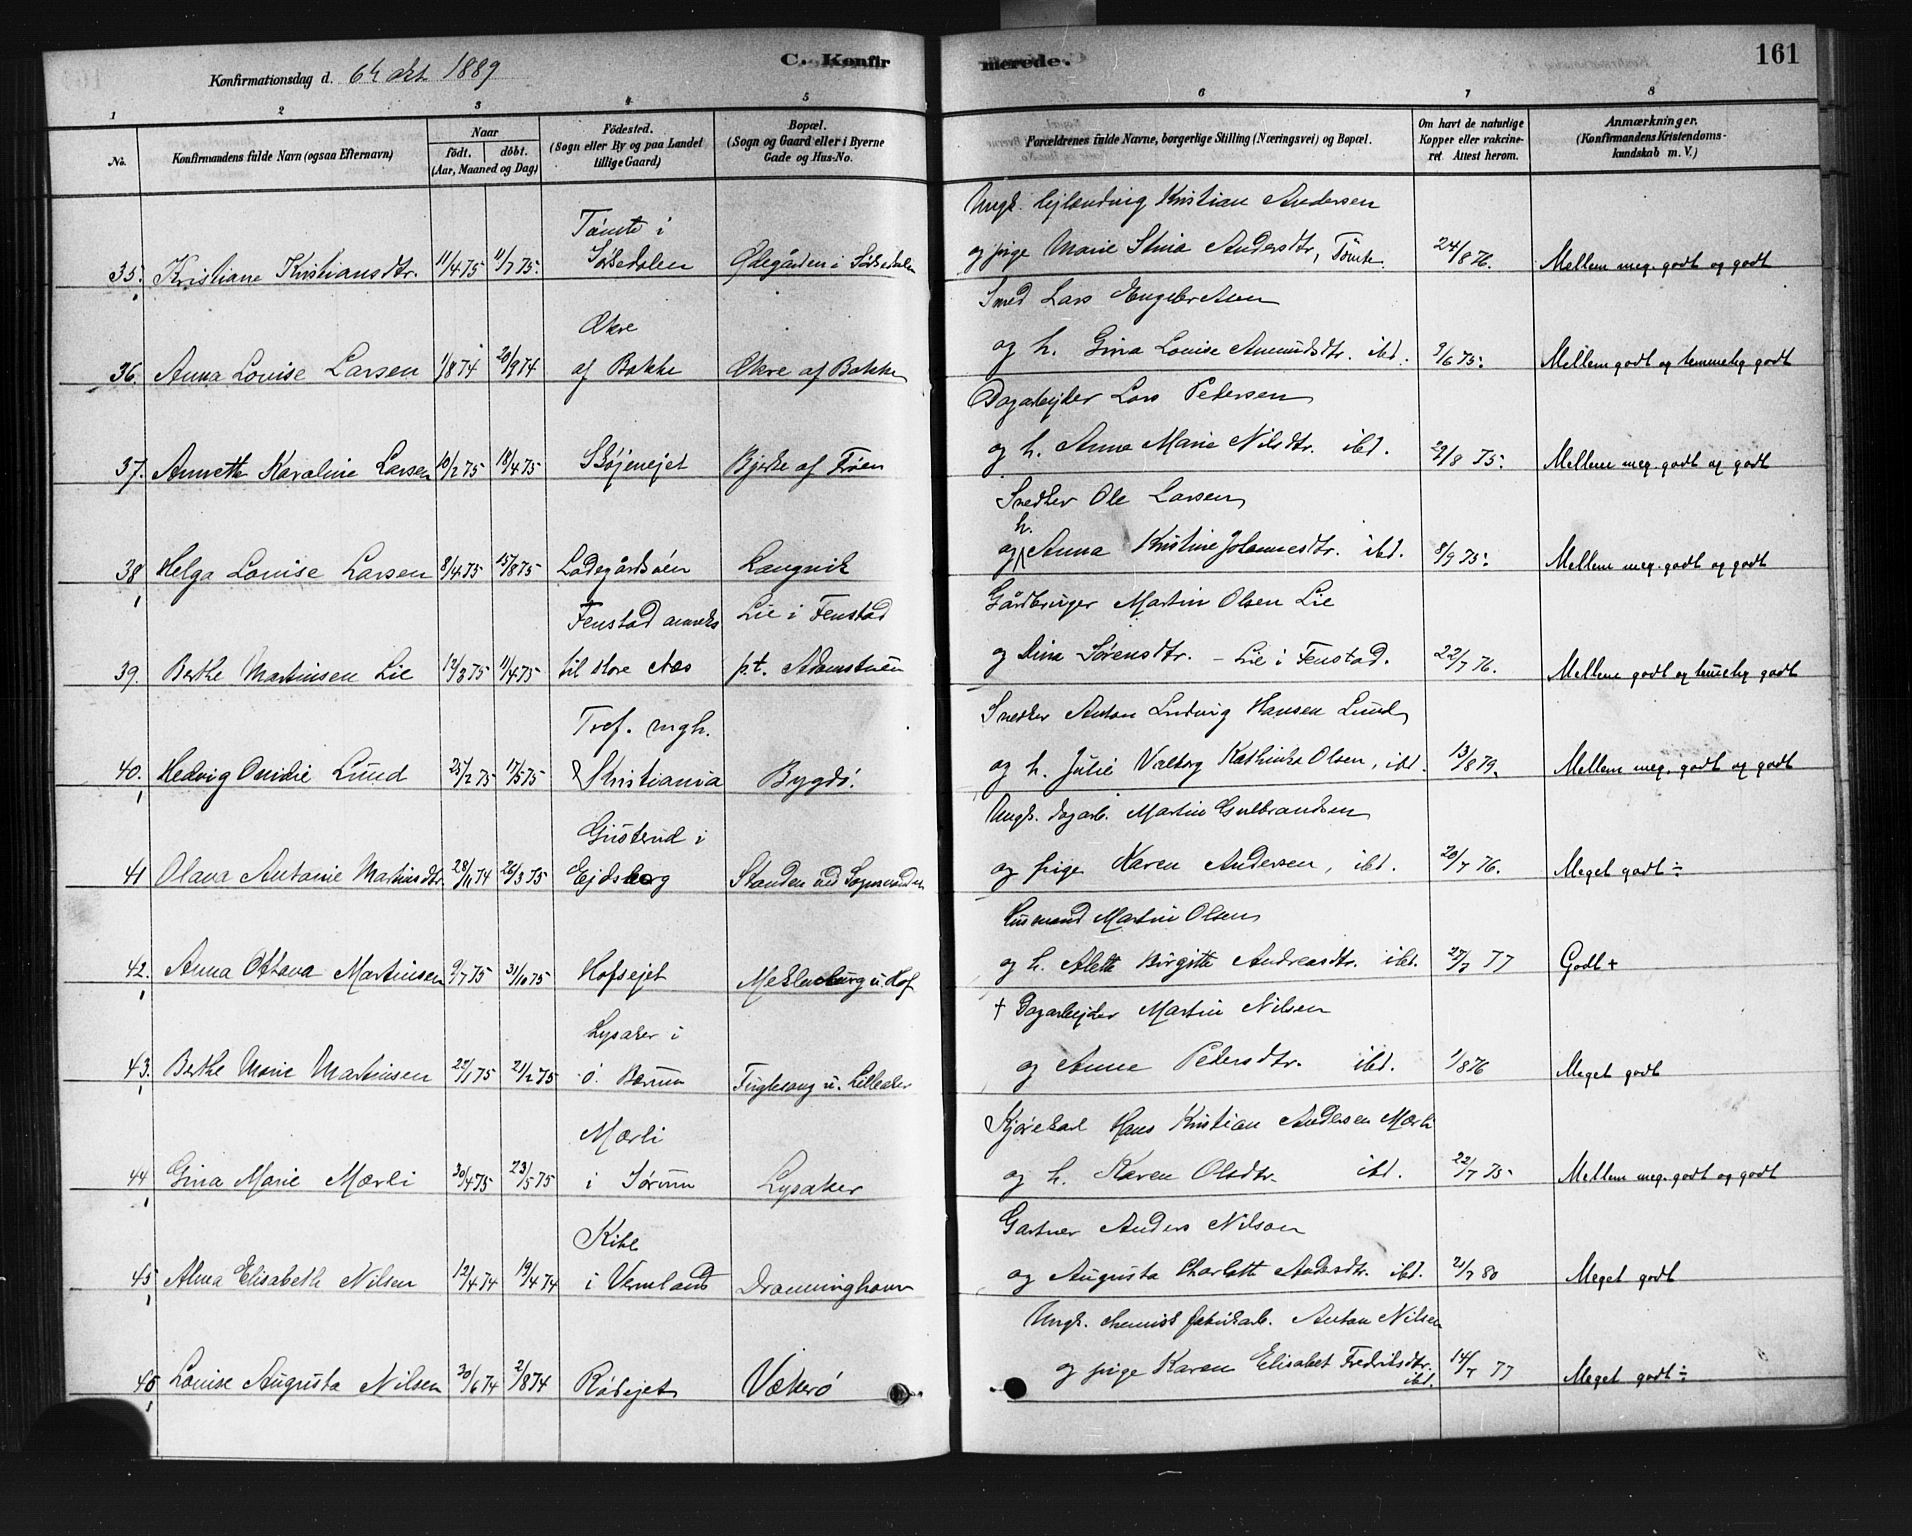 C. Konfirmerede.
161
Konfirmationsdag d. 6te okt. 1889
1 2 3 4 5 6 7 8
No.
Konfirmandens fulde Navn (ogsaa Efternavn)
Naar
födt. döbt.
(Aar, Maaned og Dag)
Födested.
(Sogn eller By og paa Landet
tillige Gaard)
Bopæl.
(Sogn og Gaard eller i Byerne
Gade og Hus-No.
Forældrenes fulde Navne, borgerlige Stilling (Næringsvei) og Bopæl.
Om havt de naturlige
Kopper eller vakcine-
ret. Attest herom.
Anmærkninger.
(Konfirmandens Kristendoms-
kundskab m. V.)
Tömte i Ungk. Lejlændning Kristian Andersen
35. Kristiane Kristiansdtr. 11/4 75 11/7 75. Sörkedalen Ødegården i Sörkedalen og pige Marie Stina Andersdtr, Tömte. 24/8 76. Mellem meg. godt og godt
Økre Smed Lars Engebretsen
36. Anna Louise Larsen 1/8 74 20/9 74 af Bakke Økre af Bakke og h. Gina Louise Amundsdtr. ibd. 3/6 75. Mellem godt og temmelig godt
Dagarbejder Lars Petersen
37. Annette Karoline Larsen 10/2 75 18/4 75 Skøjenejet Bjerke af Frøen og h. Anne Marie Nilsdtr. ibd. 29/8 75. Mellem meg. godt og godt
Snedker Ole Larsen
38 Helga Louise Larsen 8/4 75 15/8 75 Ladegårdsöen Langvik og h. Anna Kristine Johannesdtr. ibd. 8/9 75. Mellem meg. godt og godt
Fenstad anneks Lie i Fenstad Gårdbruger Martin Olsen Lie
39. Berthe Martinsen Lie 12/3 75 11/4 75 til store Næs p.t. Adamstuen og Dina Sørensdtr. – Lie i Fenstad. 22/7 76. Mellem godt og temelig godt
Tref. mgh. Snedker Anton Ludvig Hansen Lund
40. Hedvig Ovidie Lund 25/2 75 17/5 75 Kristiania Bygdö. og h. Julie Valborg Kathinka Olsen, ibd. 13/8 79. Mellem meg. godt og godt
Gisterud i Ungk. dagarb. Martin Gulbrandsen
41 Olava Antonie Martinsdtr 28/11 74 26/3 75 Ejdsberg Standen ved Sognsvandet og pige Karen Andersen, ibd. 20/7 76. Meget godt ÷
Husmand Martin Olsen
42. Anna Ottava Martinsen 9/7 75 31/10 75 Hofsejet Meklenburg u. Hof og h. Alette Birgitte Andreasdtr. ibd. 27/7 77 Godt +
Lysaker i † Dagarbejder Martin Nilsen
43. Berthe Marie Martinsen 22/1 75 21/2 75 Ö. Bærum Fuglesang u. Lilleaker og Anne Petersdtr. ibd. 1/8 76 Meget godt
Mærli Kjørekarl Hans Kristian Andersen Mærli
44 Gina Marie Mærli 30/4 75 23/5 75 i Sørum Lysaker og h. Karen Olsdtr. ibd. 22/7 75 Mellem meg. godt og godt
Kihl Gartner Anders Nilson
45 Alma Elisabeth Nilsen 12/4 74 19/4 74 i Vermland Dronninghavn og Augusta Charlotte Andersdtr. ibd. 21/7 80 Meget godt
Ungk. chemisk fabrikarb. Anton Nilsen
46 Louise Augusta Nilsen 30/6 74 2/8 74 Rödejet Vækerö og pige Karen Elisabet Fredriksdtr. ibd. 14/7 77 Meget godt ÷